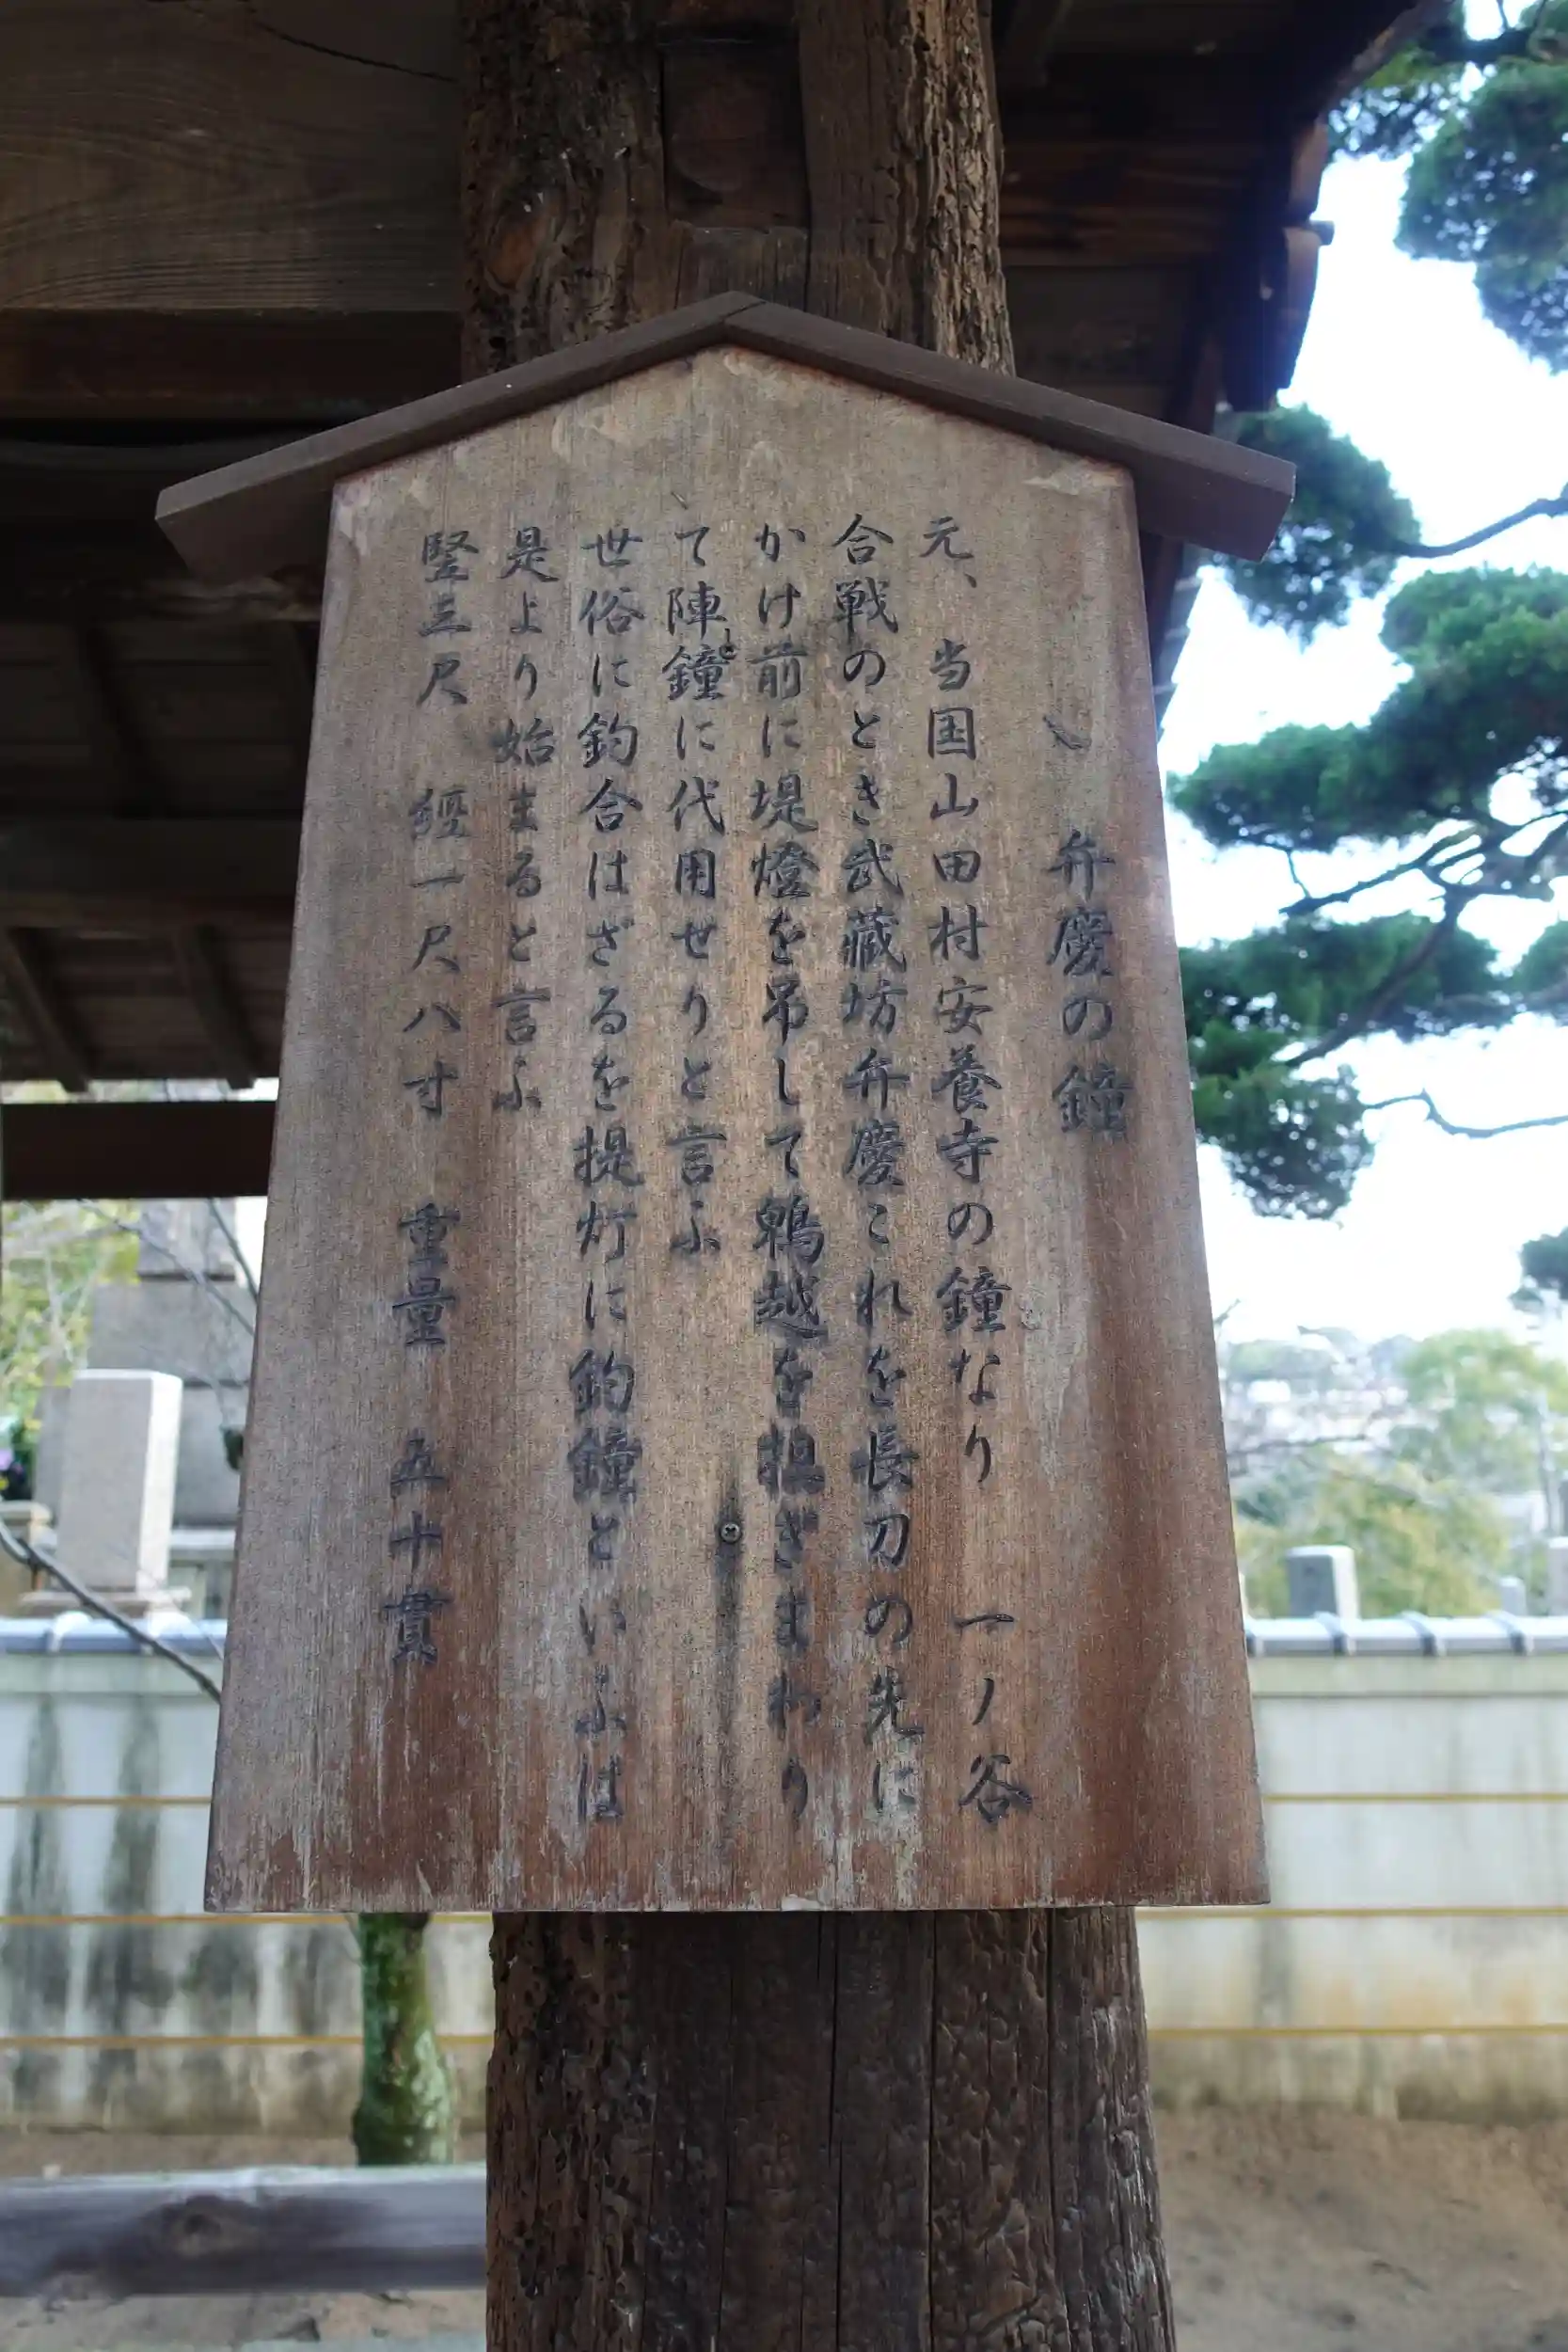 〽 弁慶の鐘
元、当国山田村安養寺の鐘なり 一ノ谷
合戦のとき武蔵坊弁慶これを長刀の先に
かけ前に堤燈を吊して鵯越を担ぎまわり
て陣鐘に代用せりと言ふ
世俗に釣合はざるを提灯に釣鐘といふは
是より始まると言ふ
竪三尺 經一尺八寸 重量 五十貫